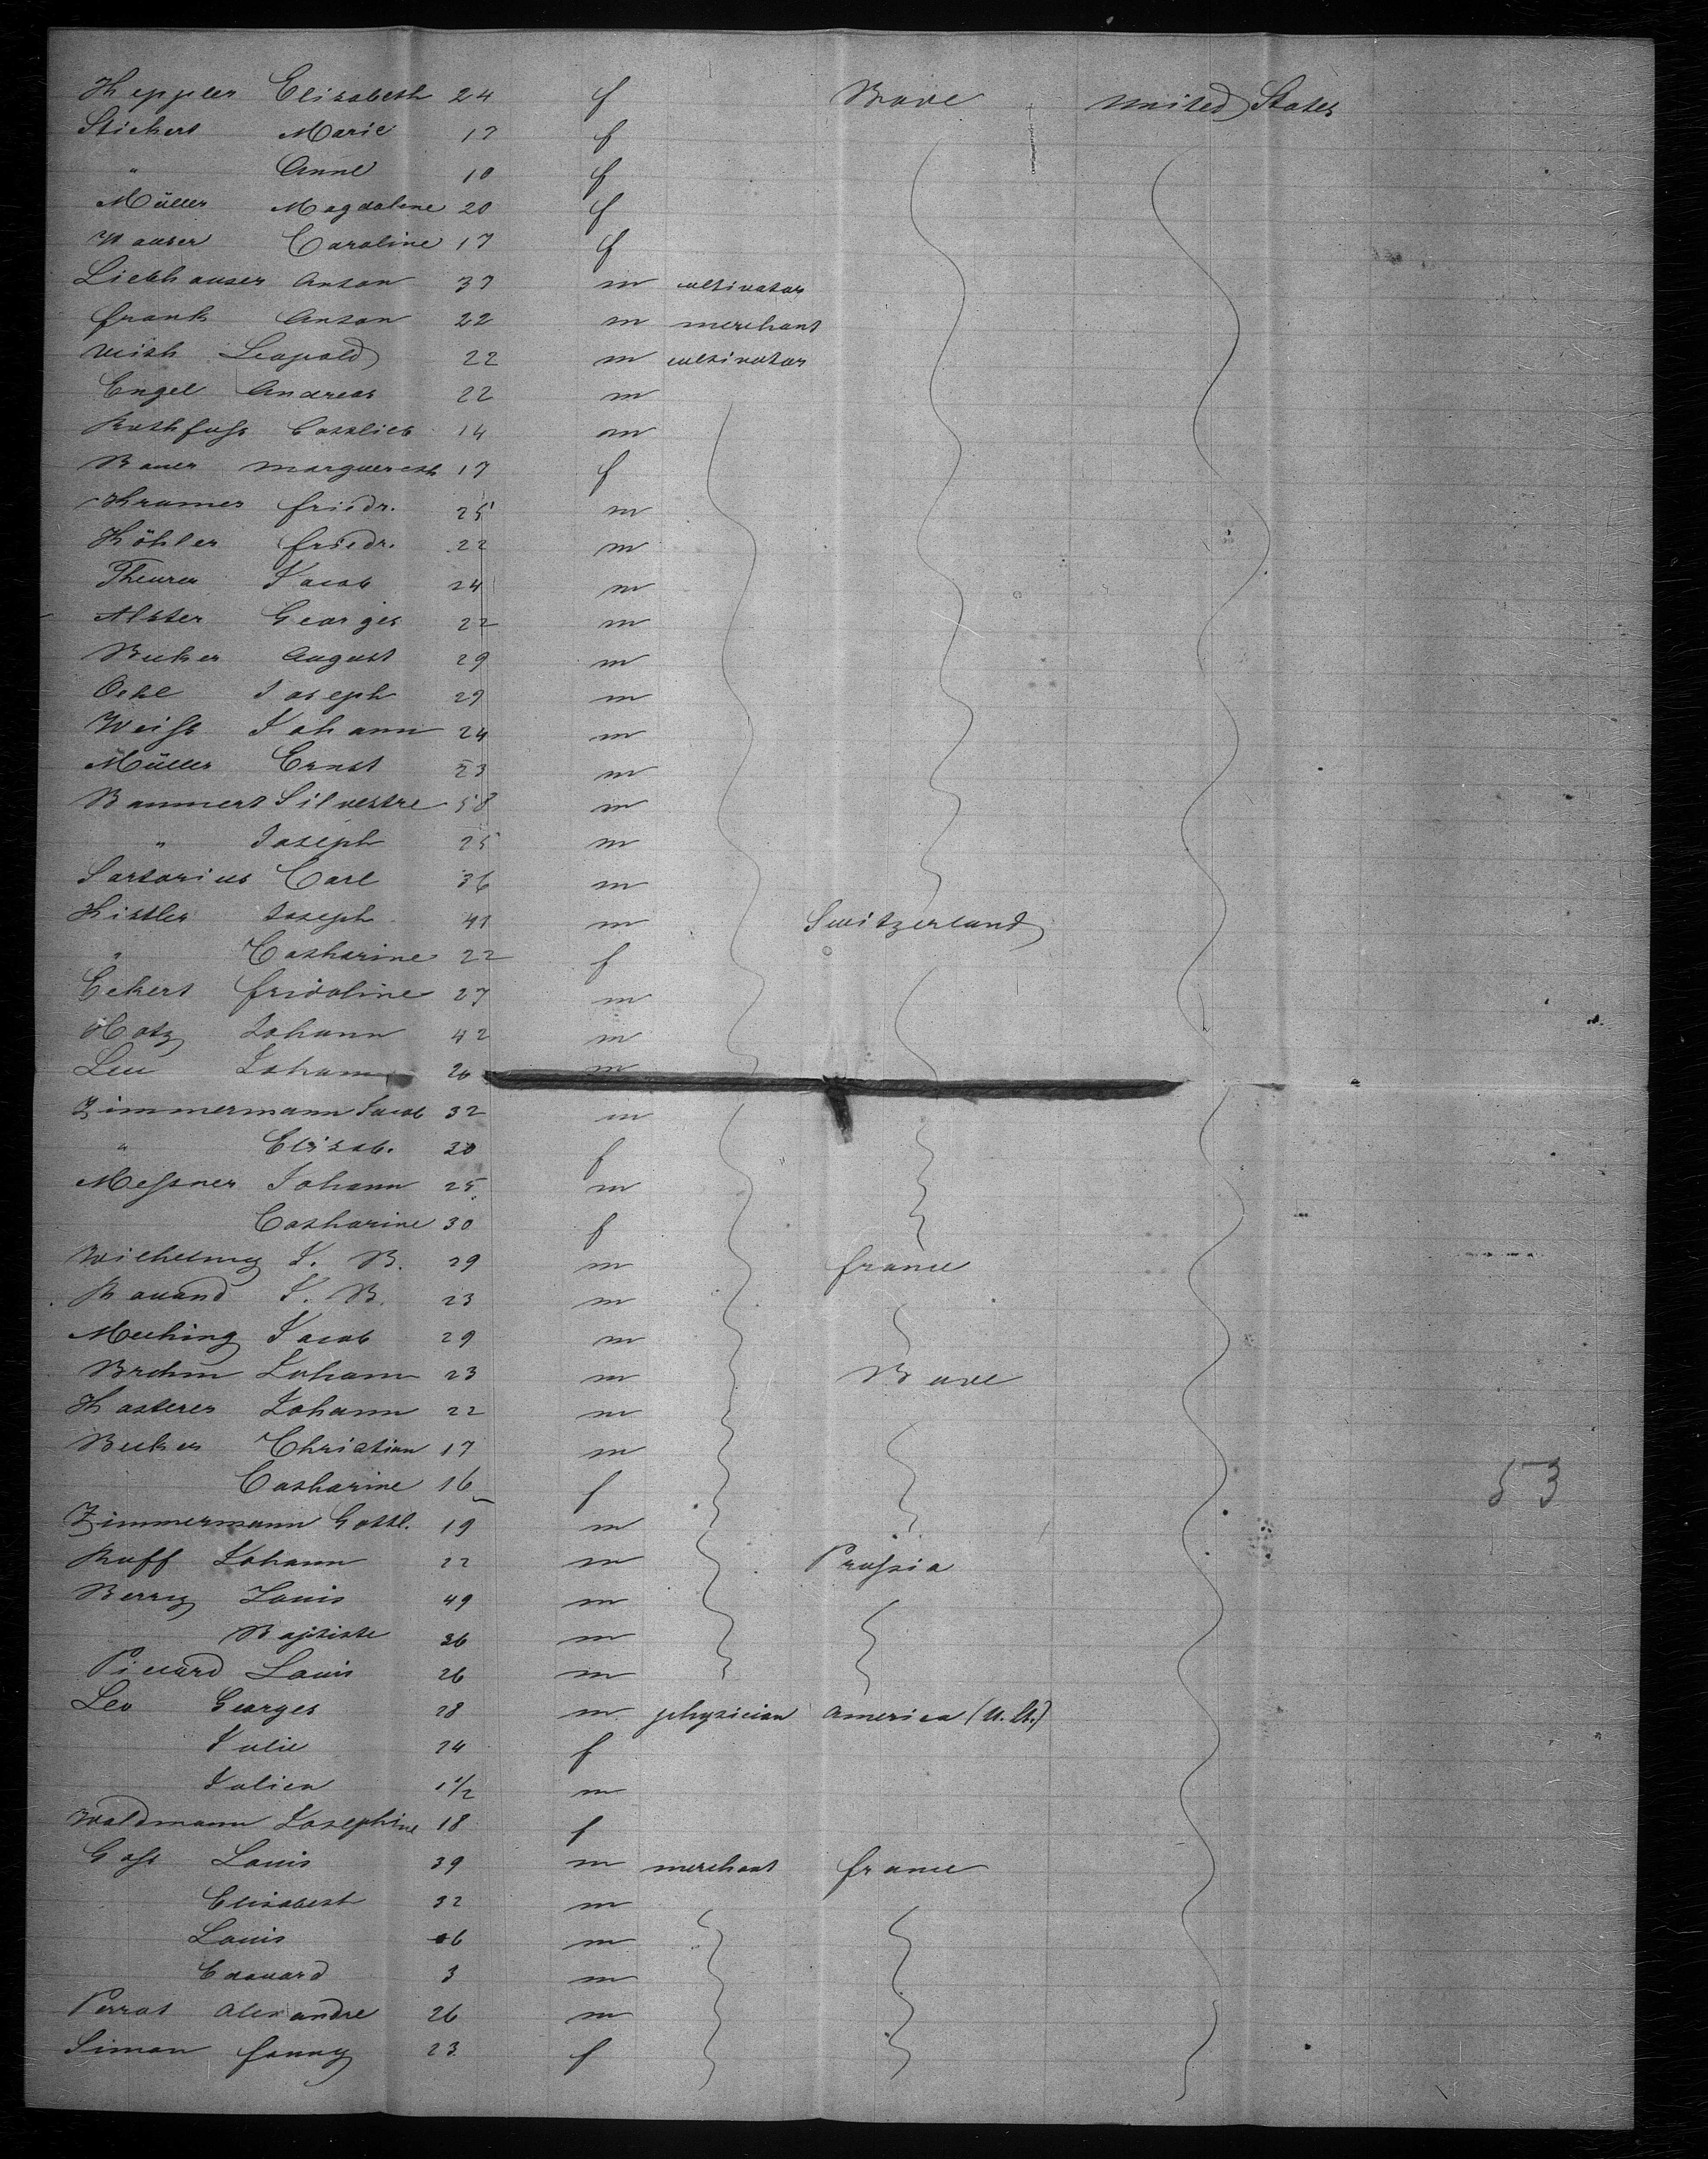 Keppler Elisabeth 24 f Bade United States
Stickert Marie 17 f
" Anne 10 f
Müller Magdalene 20 f
Hauser Caroline 17 f
Liebhauser Anton 37 m cultivator
Frank Anton 22 m merchant
Leopold 22 m cultivator
Engel Andreas 22 m
Rothfuss Gottlieb 14 m
Bauer Marguereth 17 f
Kramer Friedr. 25 m
Köhler Friedr. 22 m
Theurer Jacob 24 m
Alster Georges 22 m
Becker August 29 m
Joseph 29 m
Weiss Johann 24 m
Müller Ernst 23 m
Bammert Silvestre 58 m
" Joseph 25 m
Sartorius Carl 36 m
Kistler Joseph 41 m Switzerland
" Catharine 22 f
Eckert Fridoline 27 m
Hotz Johann 42 m
Leu Johann 20 m
Zimmermann Jacob 32 m
" Elisab. 20 f
Messner Johann 25 m
Catharine 30 f
Wilhelmy J. B. 29 m France
J. B. 23 m
Meching Jacob 29 m
Brehm Johann 23 m Bade
Kasterer Johann 22 m
Becker Christian 17 m
Catharine 16 f
53
Zimmermann Gottl. 19 m
Ruff Johann 22 m Prussia
Berry Louis 49 m
Baptiste 36 m
Picard Louis 26 m
Leo Georges 28 m physician America (U. St.)
Julie 24 f
Julien 1 1/2 m
Waldmann Josephine 18 f
Goss Louis 39 m merchant France
Elisabeth 32 m
Louis 6 m
Edouard 3 m
Perrot Alexandre 26 m
Simon Fanny 23 f